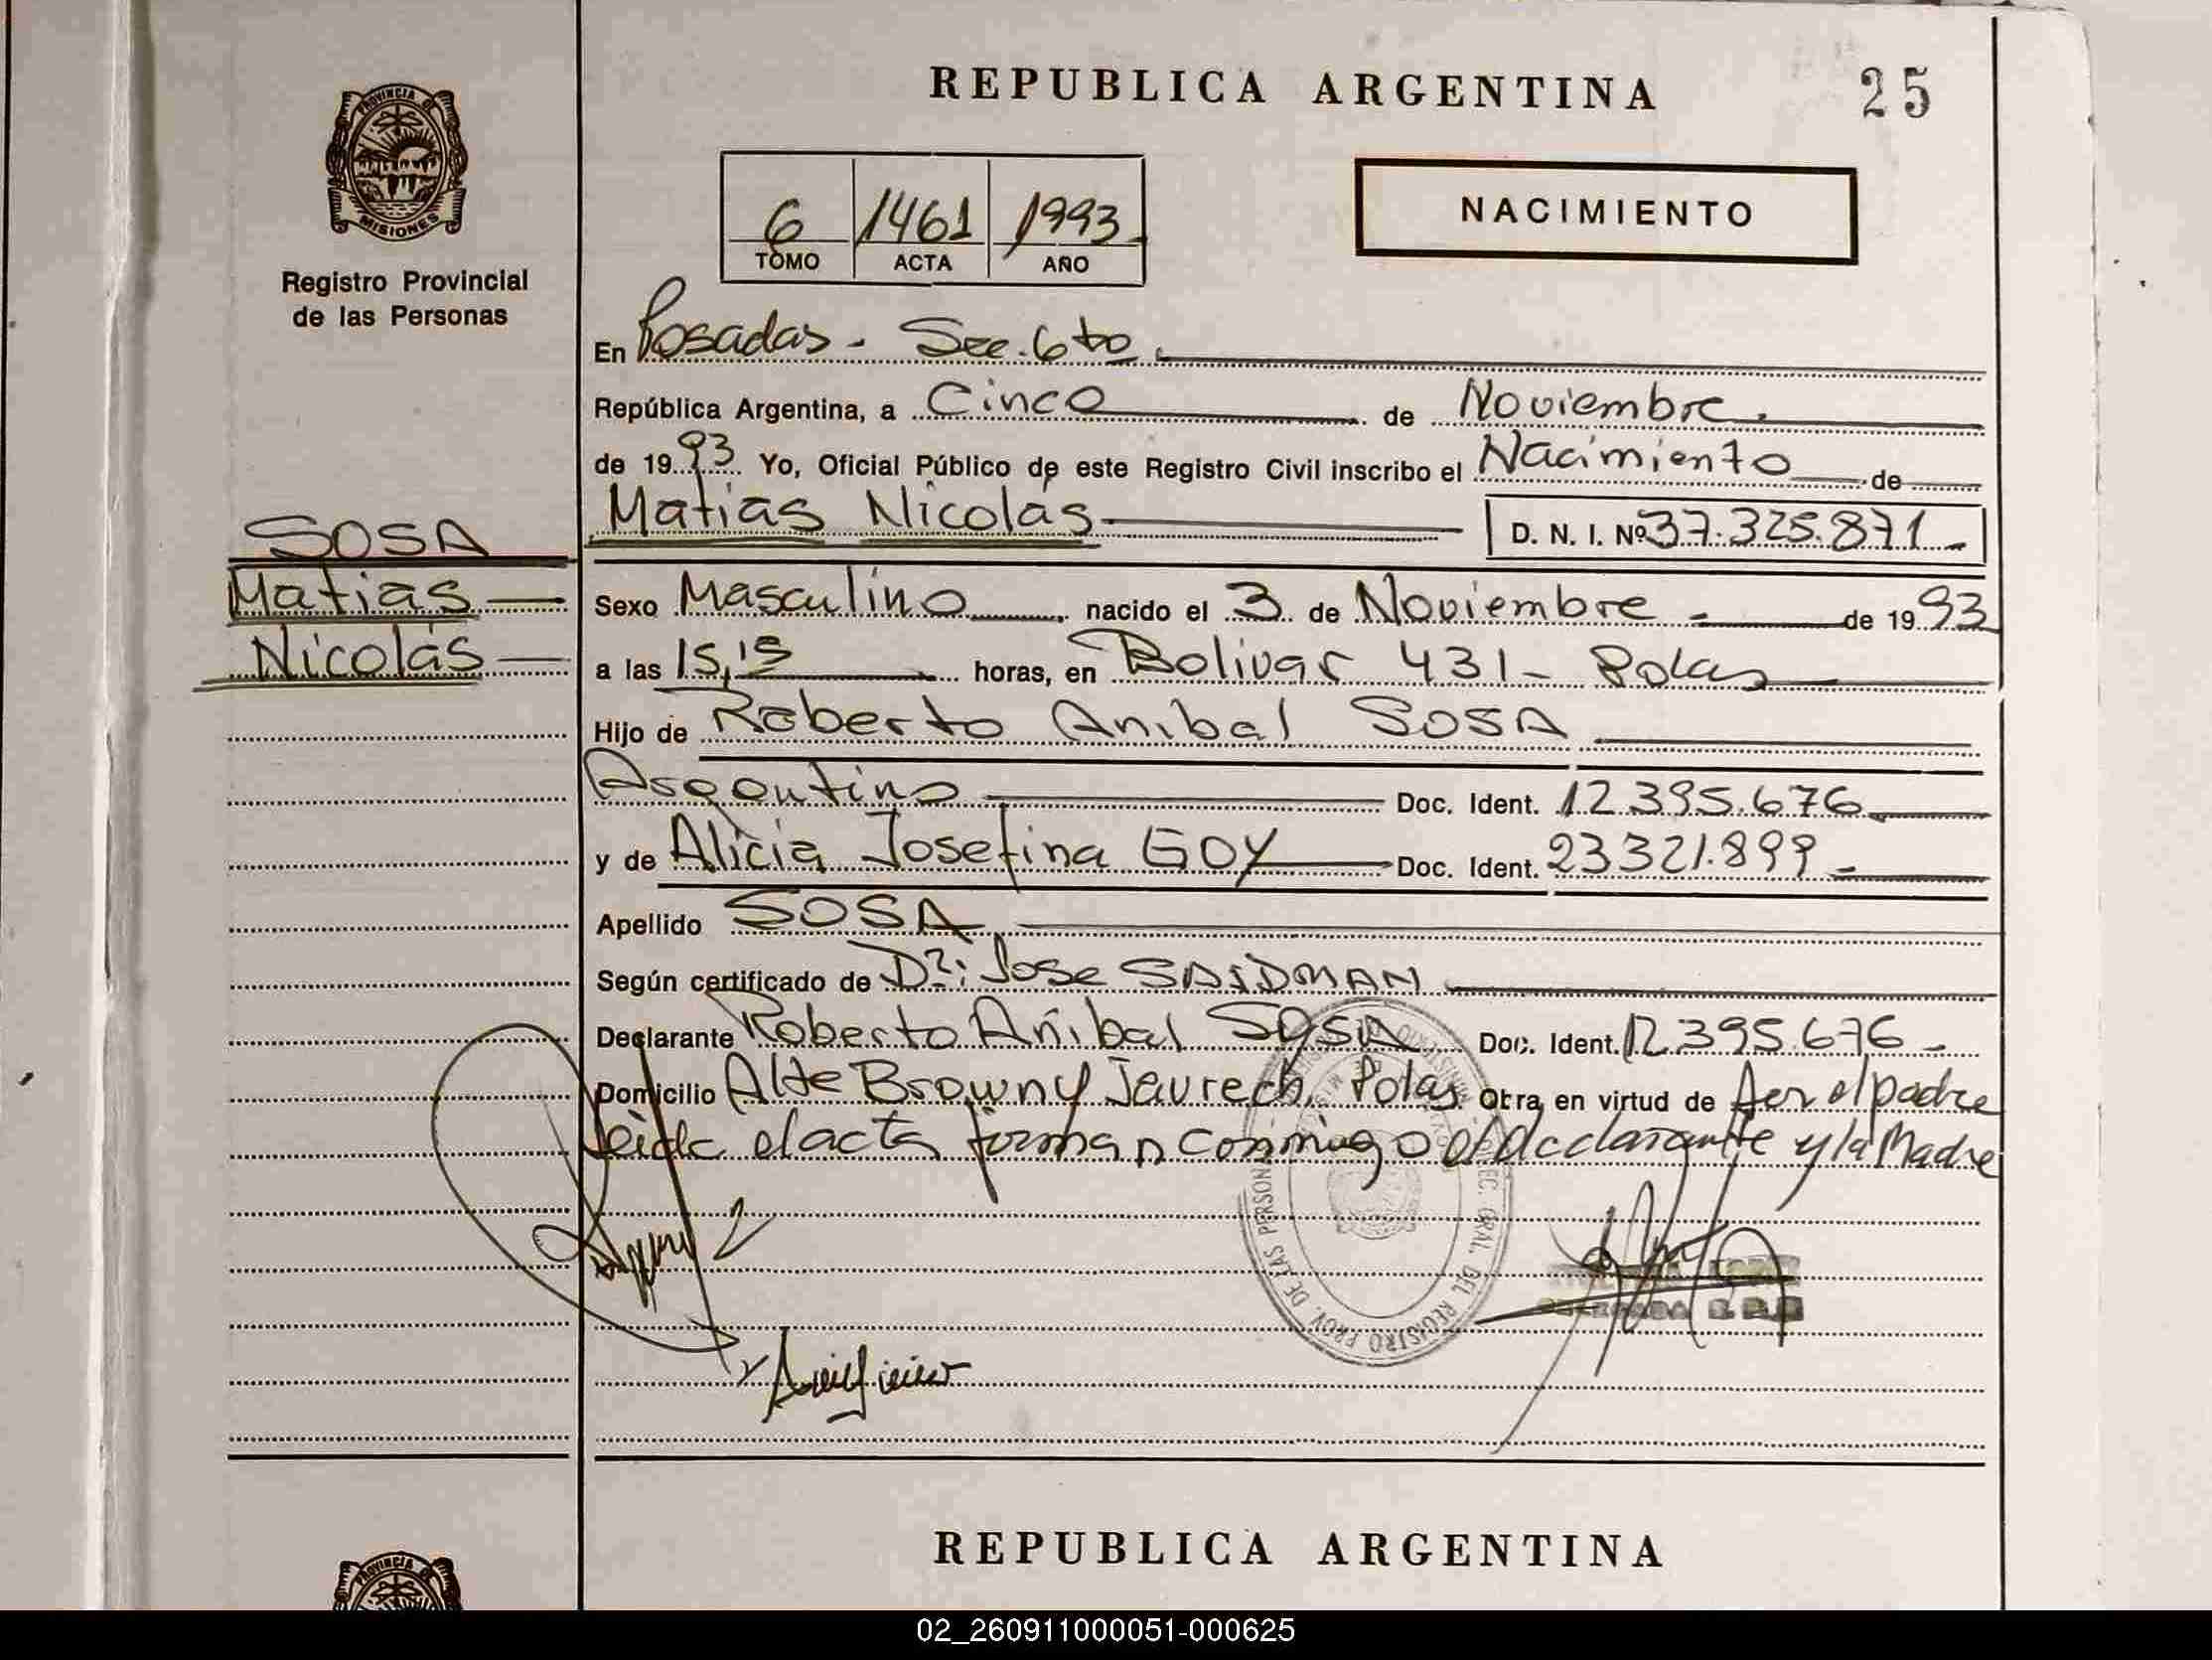 REPUBLICA ARGENTINA
25
PROVINCIA DE
MISIONES
Registro Provincial
de las Personas
6 1461 1993
TOMO ACTA AÑO
NACIMIENTO
En Posadas - Sec. 6to
República Argentina, a Cinco de Noviembre
de 1993 Yo, Oficial Público de este Registro Civil inscribo el Nacimiento de
Matias Nicolás D. N. I. Nº 37.325.871
SOSA
Matias
Nicolás
Sexo Masculino nacido el 3 de Noviembre de 1993
a las 15,15 horas, en Bolivar 431 - Pdas
Hijo de Roberto Anibal SOSA
Argentino Doc. Ident. 12.395.676
y de Alicia Josefina GOY Doc. Ident. 23321.899
Apellido SOSA
Según certificado de Dr: Jose SAIDMAN
Declarante Roberto Anibal SOSA Doc. Ident. 12.395.676
Domicilio Alte Brown y Jaurech, Pdas Otra, en virtud de ser el padre
leida el acta firman conmigo el declarante y la Madre
REPUBLICA ARGENTINA
PROVINCIA DE
02_260911000051-000625